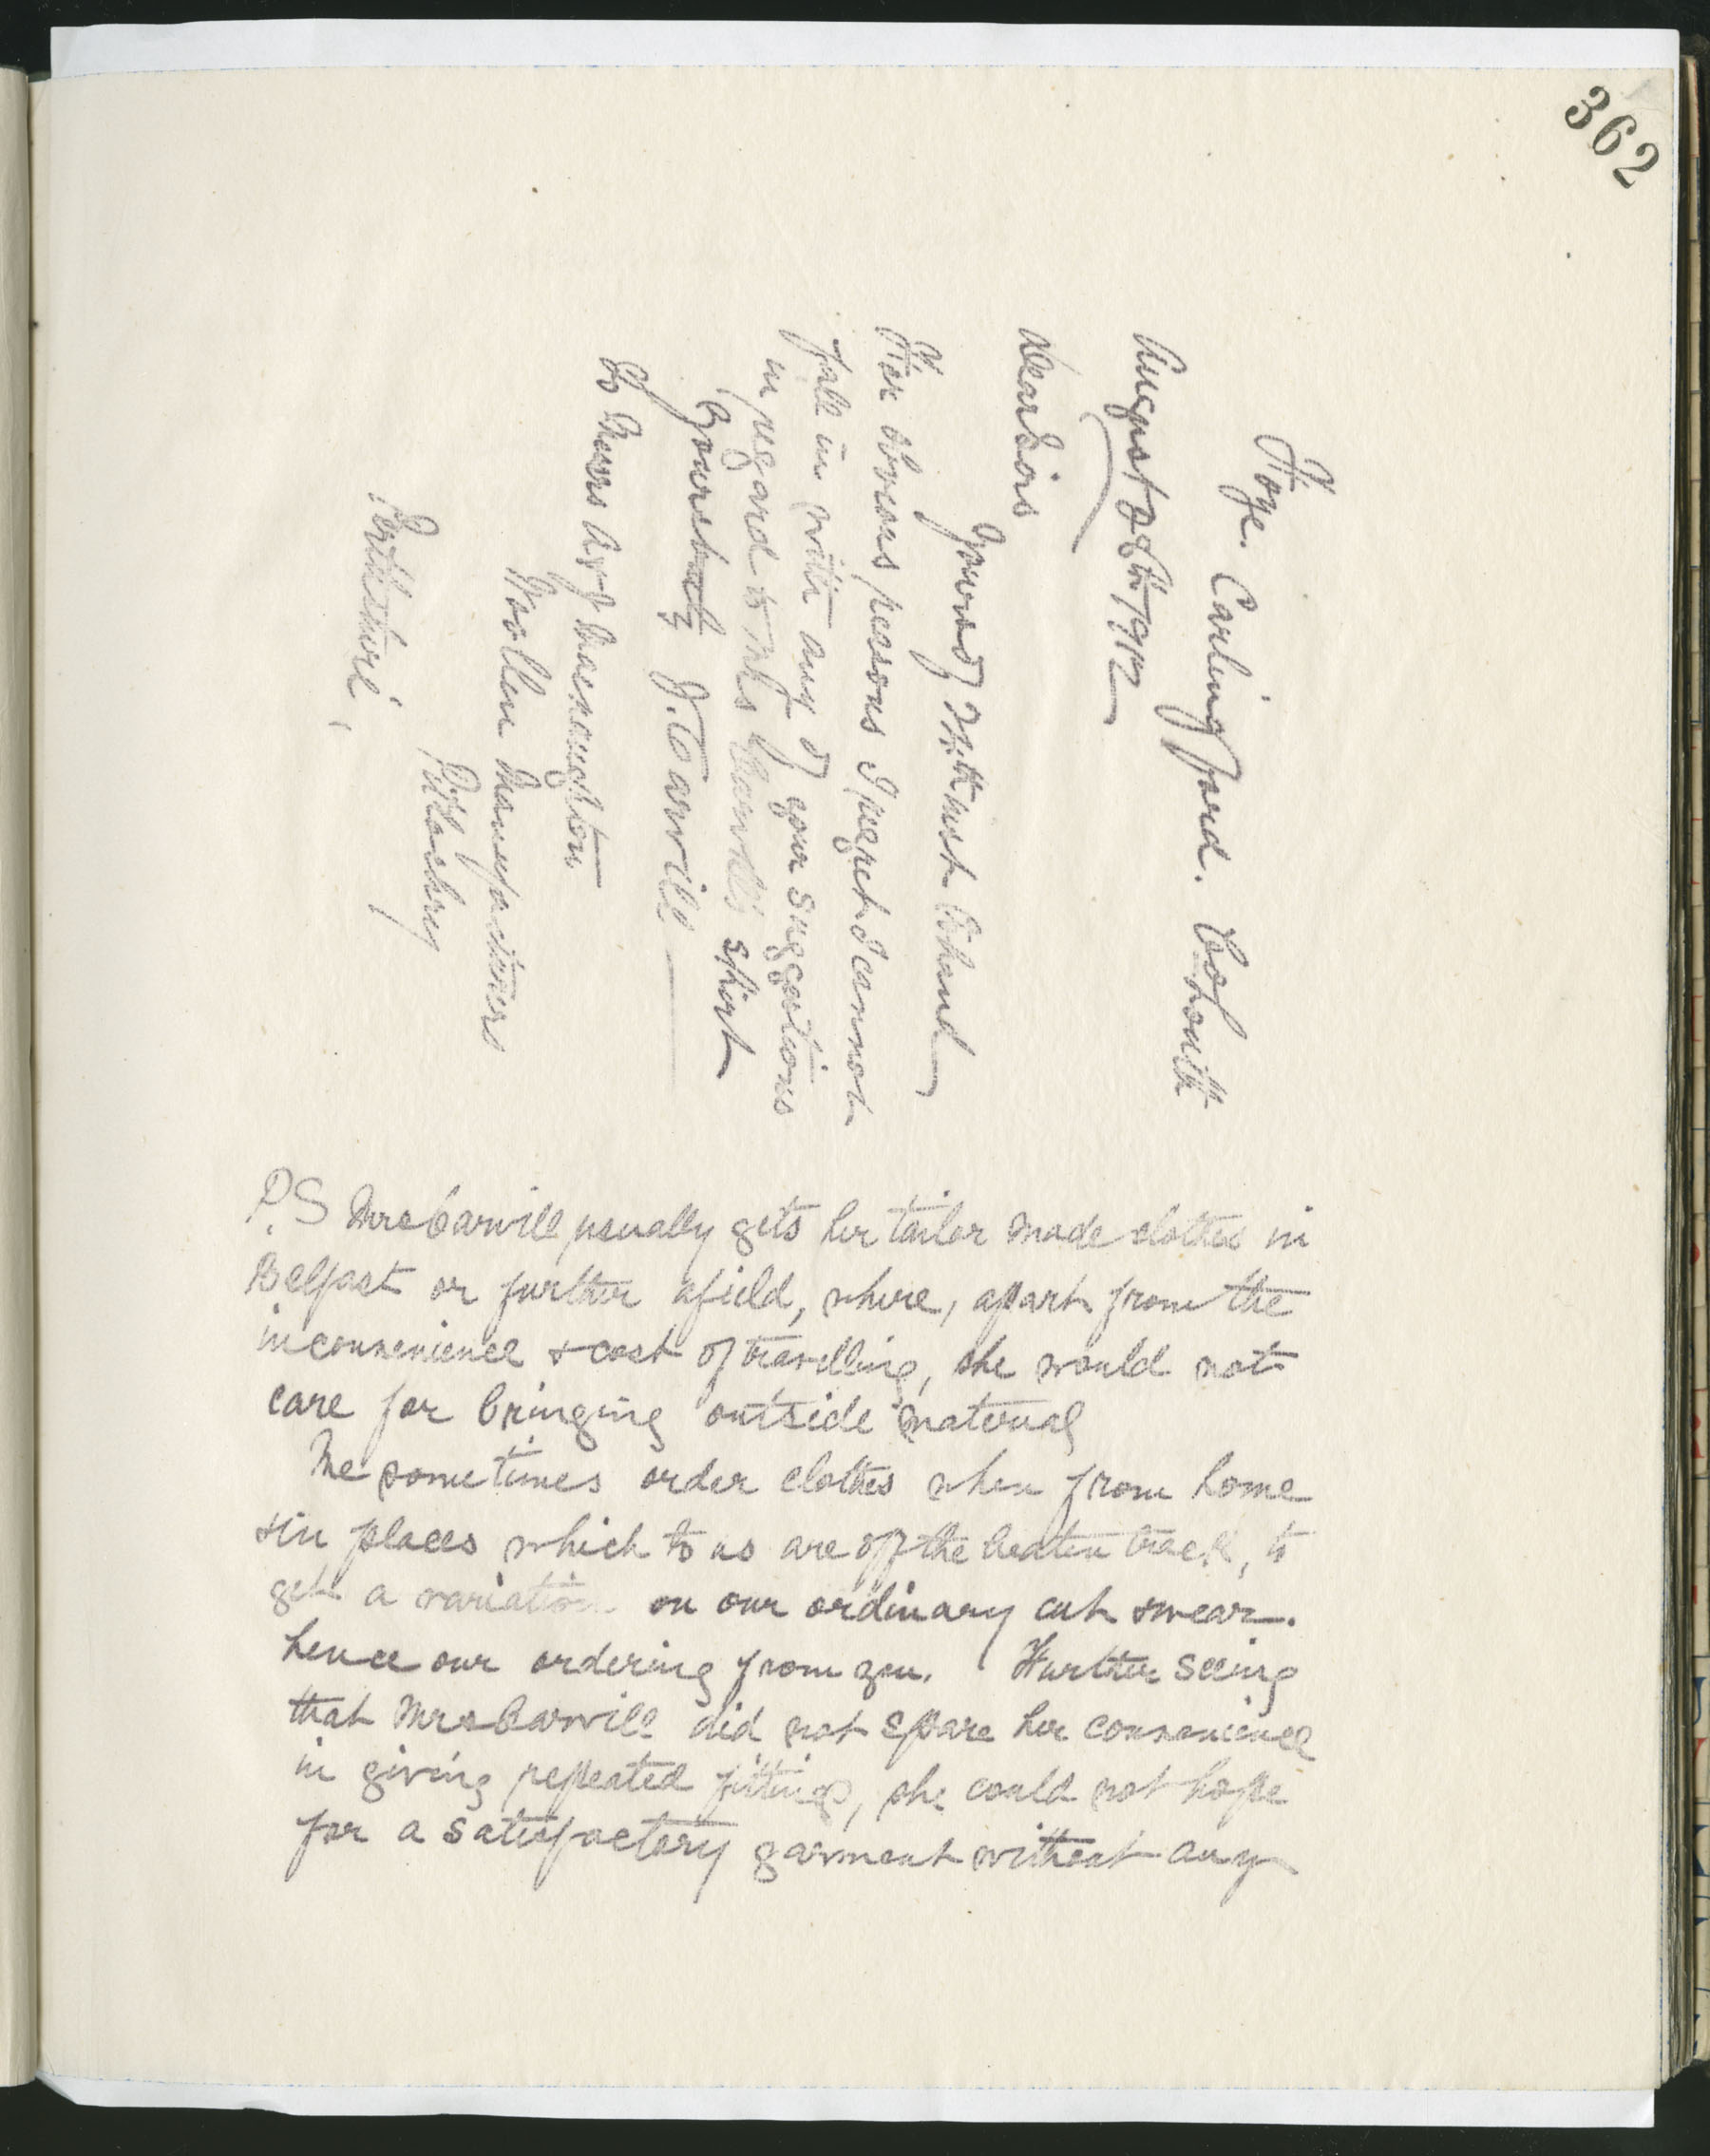 362
Foye. Carlingford. Co Louth
August 28th 1912
Dear Sirs
Yours of 27th inst to hand
For obvious reasons I regret I cannot
fall in with any of your suggestions
in regard to Mrs Carvill's skirt
Yours truly J. Carvill
To Messrs A & J Macnaughton
Woollen Manufacturers
Pitlochry
Perthshire
P.S Mrs Carvill usually gets her tailor made clothes in
Belfast or further afield, where, apart from the
inconvenience & cost of travelling, she would not
care for bringing outside material
We sometimes order clothes when from home
& in places which to us are off the beaten track, to
get a variation on our ordinary cut & wear.
hence our ordering from you. Further seeing
that Mrs Carvill did not spare her convenience
in giving repeated fittings, she could not hope
for a satisfactory garment without any